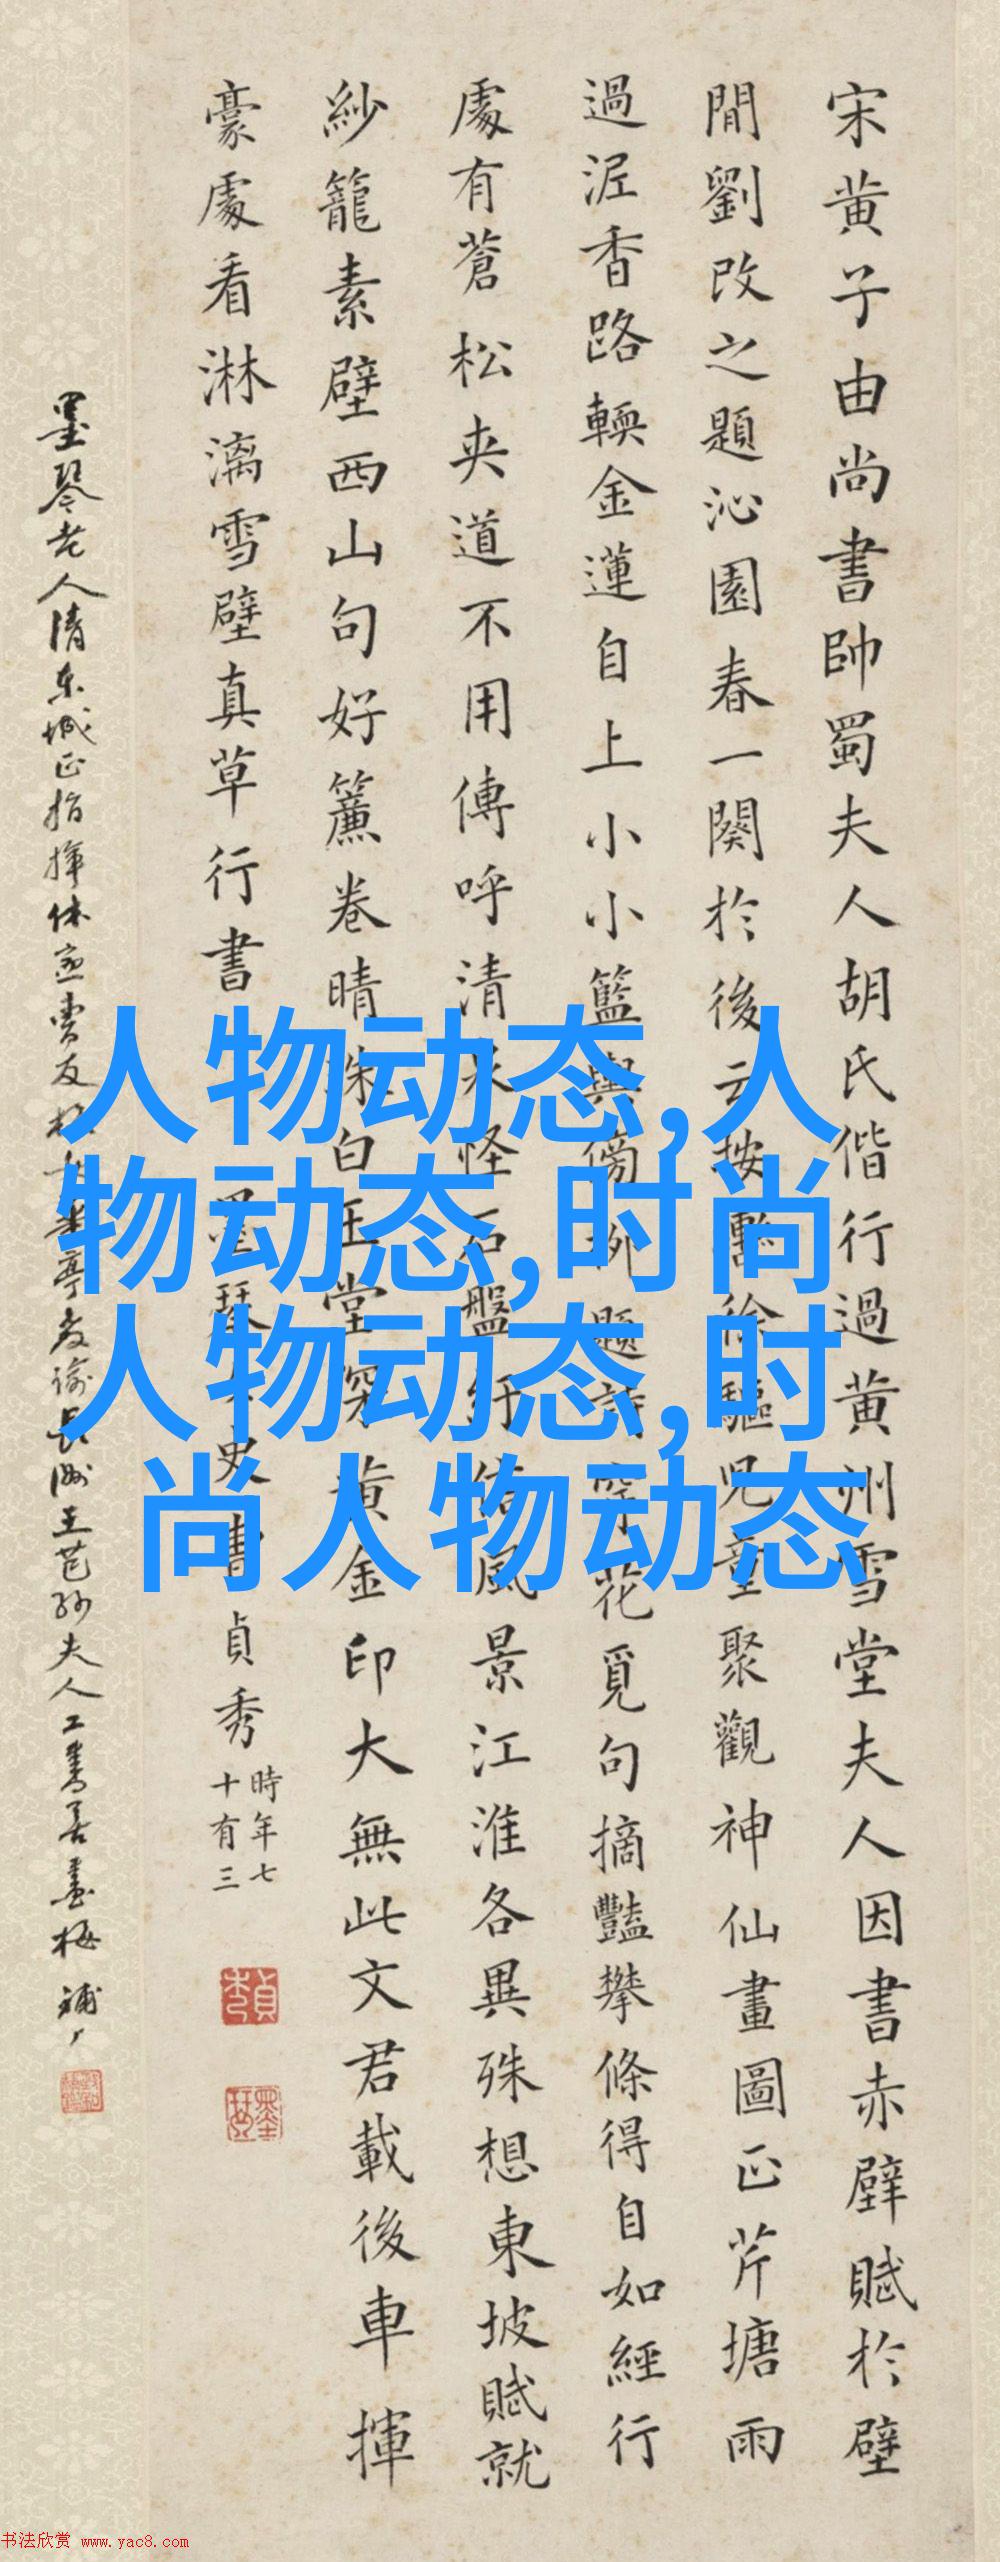 宋黄子由尚書帥蜀夫人胡氏偕行過黄州雪堂夫人因書赤壁賦於壁
間劉改之題沁園春一闋於後云按轡徐驅兒童聚觀神仙畫圖正芹塘雨
過泥香路輭金蓮自上小小籃輿傍柳題詩穿花覓句摘豔攀條得自如經行
處有蒼松夾道不用傳呼清泉怪石盤紆信風景江淮各異殊想東坡賦就
紗籠素壁西山句好簾卷晴珠白玉堂深黄金印大無此文君載後車揮
豪處看淋漓雪壁真草行書
墨琴女史曹貞秀
時年七
十有三
墨琴老人清東城正指揮
長洲王芑孫夫人工書善畫梅
人物动态,人
物动态,时尚
人物动态,时
尚人物动态
书法欣赏 www.yac8.com